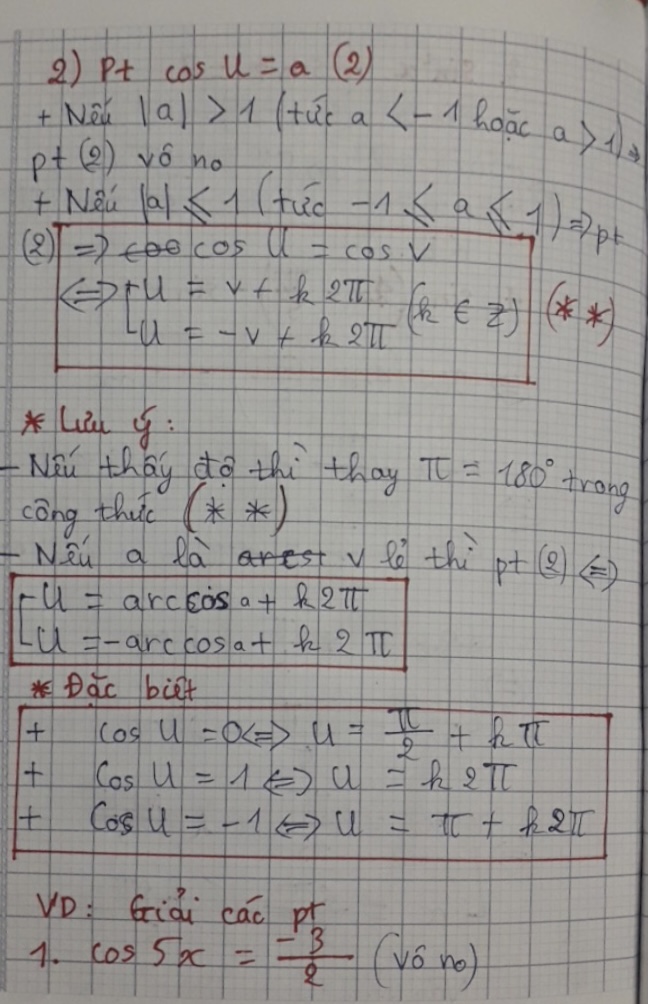 2) Pt cos U = a (2)
+ Nếu |a| > 1 (tức a < -1 hoặc a > 1) ⇒
pt (2) vô no
+ Nếu |a| ≤ 1 (tức -1 ≤ a ≤ 1) ⇒ pt
(2) ⇒ cos U = cos v
⇔ [ U = v + k 2π
U = -v + k 2π (k ∈ Z) (* *)
* Lưu ý:
- Nếu thấy độ thì thay π = 180° trong
công thức (* *)
- Nếu a là v lẻ thì pt (2) ⇔
[ U = arccos a + k 2π
U = -arccos a + k 2π
* Đặc biệt
+ cos U = 0 ⇔ U = π/2 + kπ
+ Cos U = 1 ⇔ U = k 2π
+ Cos U = -1 ⇔ U = π + k 2π
VD: Giải các pt
1. cos 5x = -3/2 (vô no)